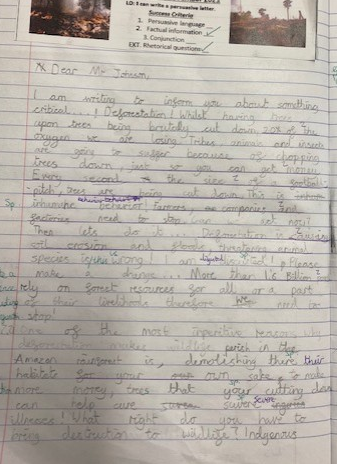 LO: I can write a persuasive letter.
Success Criteria
1. Persuasive language
2. Factual information
3. Conjunction
EXT: Rhetorical questions
Dear Mr Jonson,
I am writing to inform you about something
critical...! Deforestation! Whilst having trees
upon trees being brutally cut down, 20% of the
oxygen we are losing. Tribes, animals and insects
are going to suffer because of chopping
trees down just so you can get money.
Every second, the size of a football
pitch, trees are being cut down. This is
inhumane behavior. Farmers, companies and
factories need to stop. Can act now?
Then lets do it... Deforestation is causing
soil erosion and floods, threatening animal
species is wrong! I am disgusted! Please
make a change... More than 1.6 Billion
rely on forest resources for all or a part
of their livelihoods therefore we need
stop!
One of the most imperitive reasons why
deforestation makes wildlife perish in the
Amazon rainforest is, demolishing there their
habitats for your own sake, to make
more money, trees that your cutting down
can help cure severe
illnesses! What right do you have to
bring destruction to wildlife? Indgenous